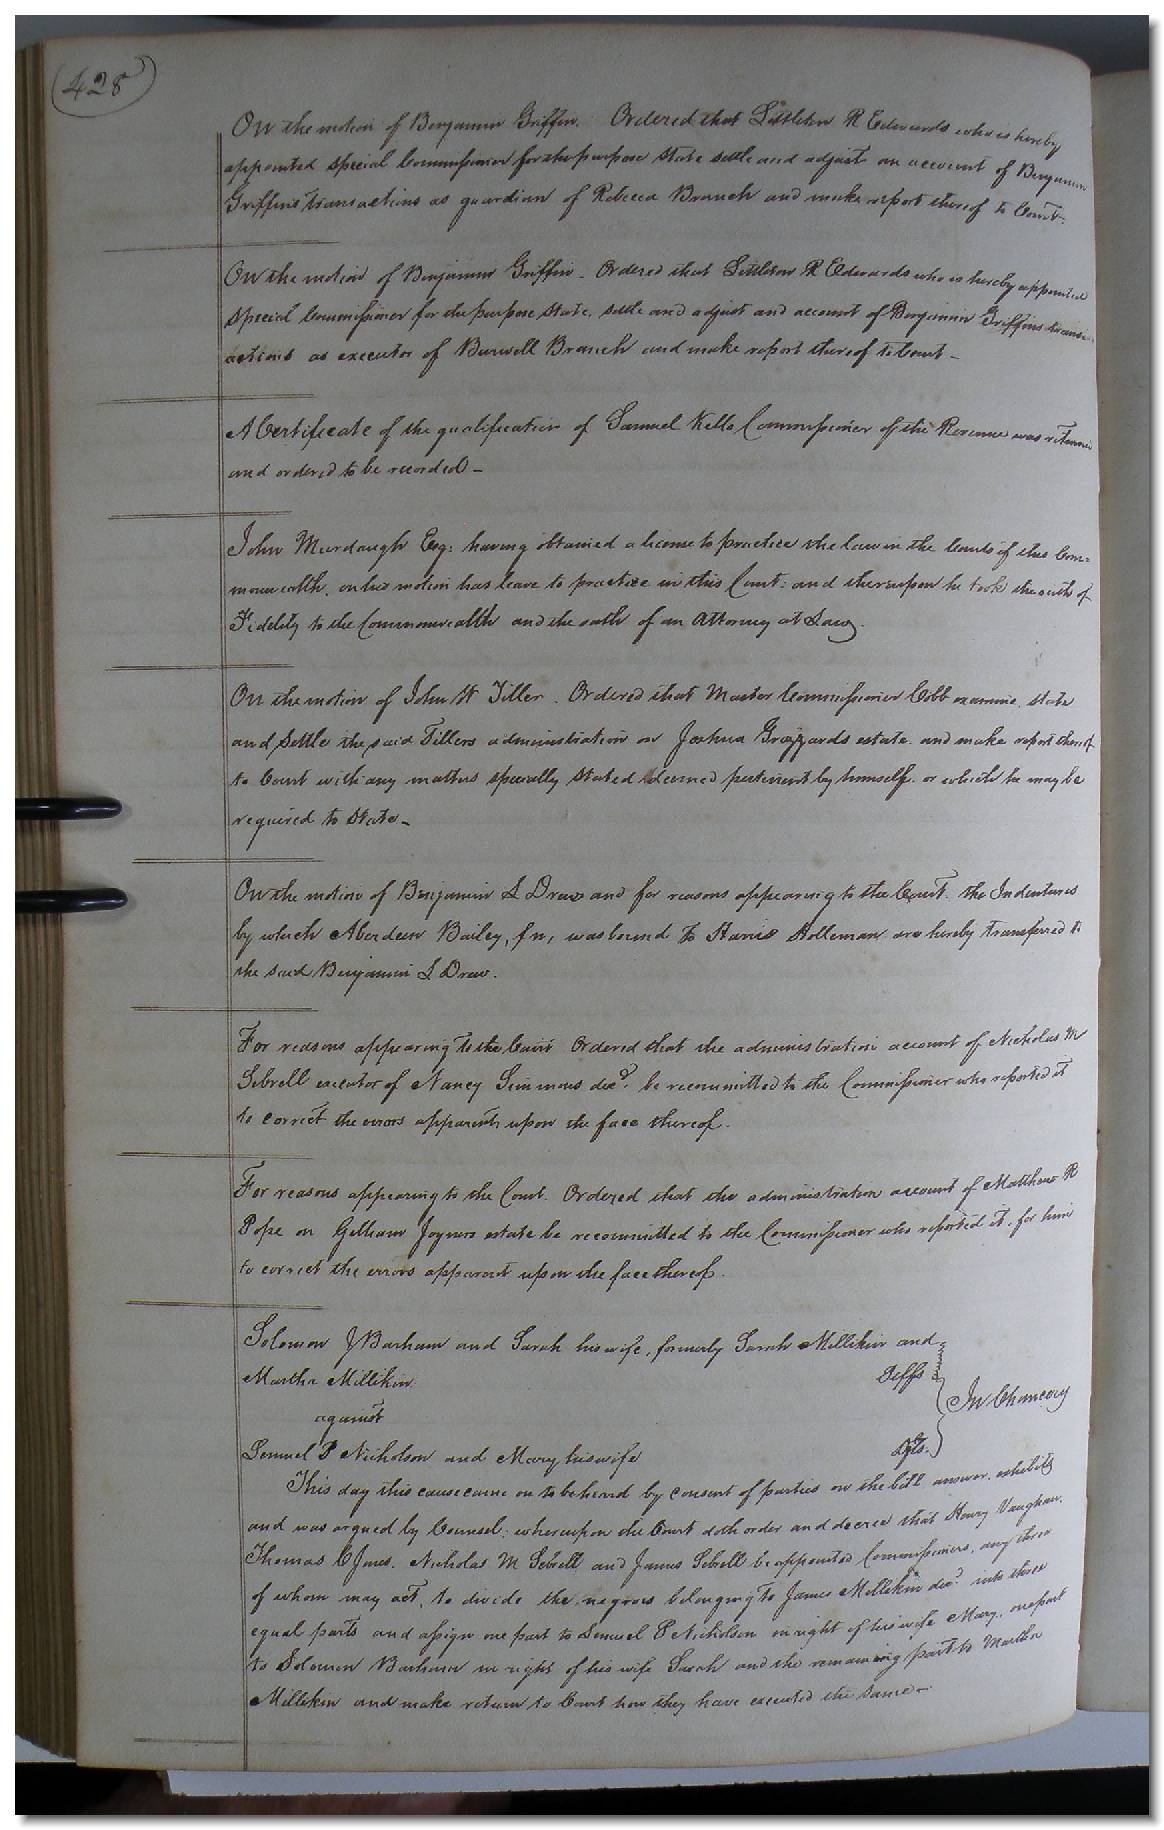 428
On the motion of Benjamin Griffin. Ordered that Littleton R Edwards who is hereby
appointed special Commissioner for the purpose state settle and adjust an account of Benjamin
Griffins transactions as guardian of Rebecca Branch and make report thereof to Court.
On the motion of Benjamin Griffin. Ordered that Littleton R Edwards who is hereby appointed
special Commissioner for the purpose state, settle and adjust and account of Benjamin Griffins trans-
actions as executor of Burwell Branch and make report thereof to Court -
A Certificate of the qualification of Samuel Kello Commissioner of the Revenue was returned
and ordered to be recorded -
John Murdaugh Esq: having obtained a license to practice the law in the Courts of this Com=
monwealth, on his motion has leave to practice in this Court: and thereupon he took the oath of
Fidelity to the Commonwealth and the oath of an Attorney at Law.
On the motion of John W Tiller. Ordered that Master Commissioner Cobb examine, state
and settle the said Tillers administration on Joshua Grizzards estate. and make report thereof
to Court with any matters specially stated deemed pertinent by himself. or which he may be
required to State -
On the motion of Benjamin L Drew and for reasons appearing to the Court. the Indentures
by which Aberdeen Bailey, fn, was bound to Harris Holleman are hereby transferred to
the said Benjamin L Drew.
For reasons appearing to the Court Ordered that the administration account of Nicholas M
Sebrell executor of Nancy Simmons decd. be recommitted to the Commissioner who reported it
to correct the errors apparent upon the face thereof.
For reasons appearing to the Court. Ordered that the administration account of Matthew R
Pope on Gilliam Joyners estate be recommitted to the Commissioner who reported it, for him
to correct the errors apparent upon the face thereof.
Solomon J Barham and Sarah his wife, formerly Sarah Millikin and
Martha Millikin Plffs
against In Chancery
Samuel P Nicholson and Mary his wife Dfts.
This day this cause came on to be heard by consent of parties on the bill answer, exhibits
and was argued by Counsel; whereupon the Court doth order and decree that Henry Vaughan,
Thomas C Jones. Nicholas M Sebrell and James Sebrell be appointed Commissioners, any three
of whom may act, to divide the negroes belonging to James Millikin decd. into three
equal parts and assign one part to Samuel P Nicholson in right of his wife Mary, one part
to Solomon Barham in right of his wife Sarah and the remaining part to Martha
Millikin and make return to Court how they have executed the same -